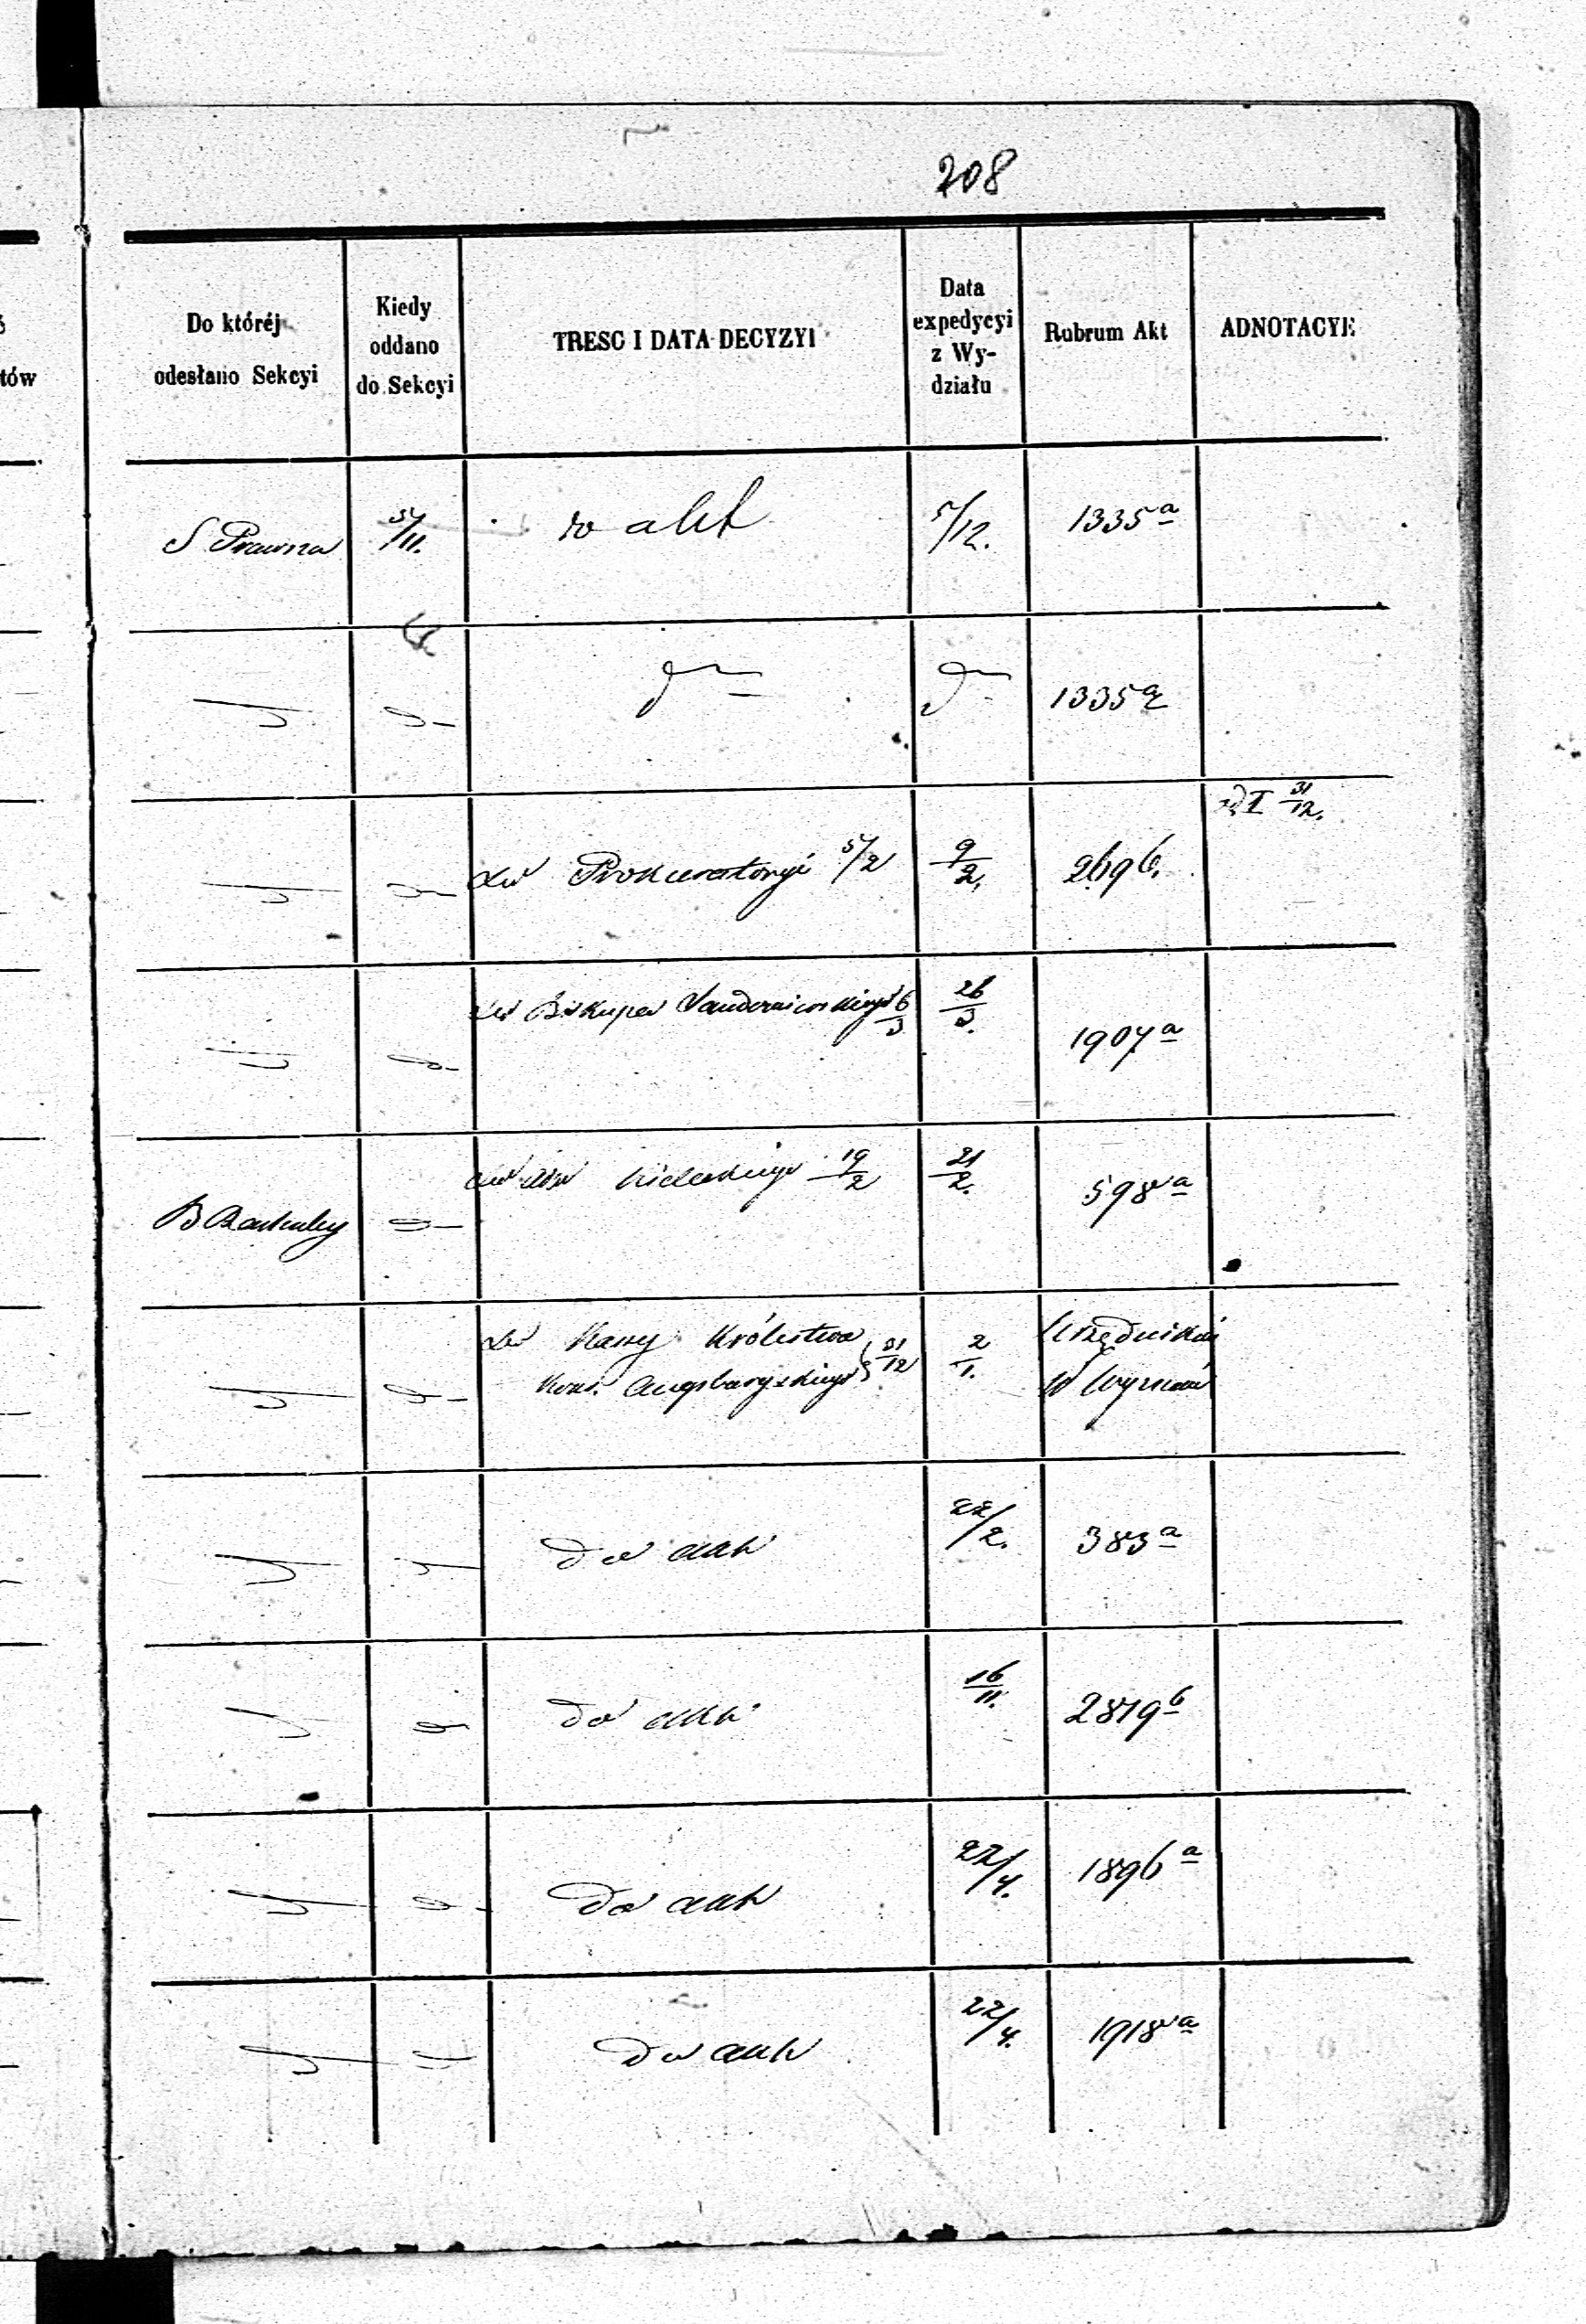 208
ś
tów
Do któréj
odesłano Sekcyi
Kiedy
oddano
do Sekcyi
TRESC I DATA DECYZYI
Data
expedycyi
z Wy-
działu
Rubrum Akt
ADNOTACYE
S Prawna 5/11. do akt 5/12. 1335 a
1335 a
31/12.
do Prokuratoryi 5/2 9/2. 269 b.
do Biskupa Sandomierskiego 6/3 26/3. 1907 a
Kieleckiego 19/2 21/2. 598 a
B Rachuby
do Kassy Królestwa
Kons. Augsburgskiego 31/12 2/1. Urzędników
do akt 22/2. 383 a
do akt 16/11. 2819 b
do akt 22/4. 1896 a
do akt 22/4. 1918 a